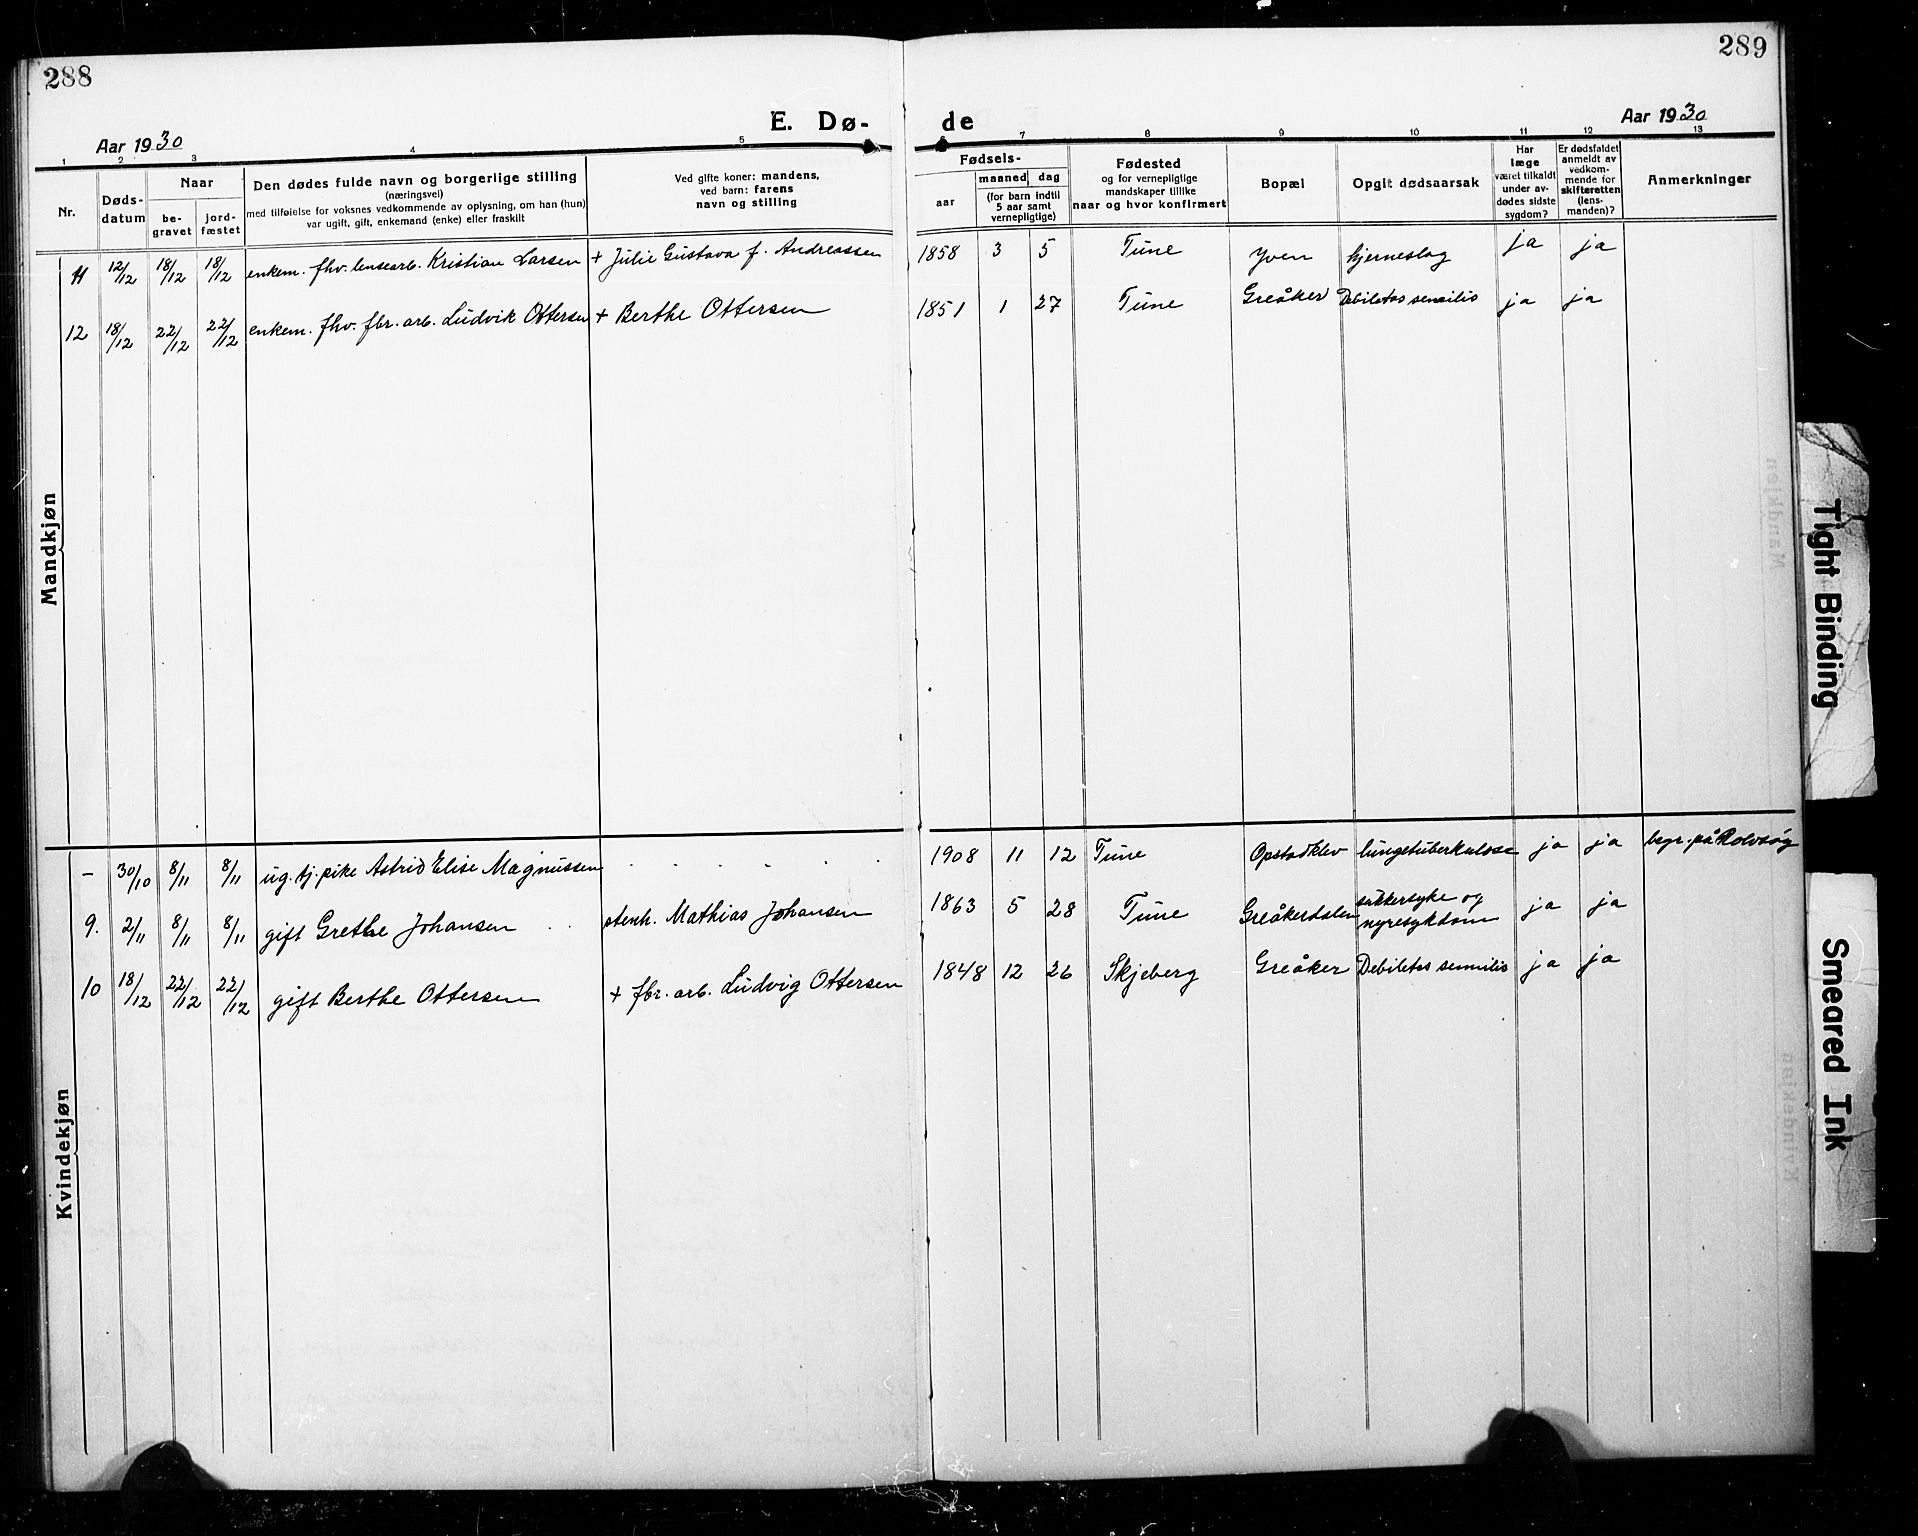 288
289
E. Dø- de
Aar 1930
Aar 1930
1 2 3 4 5 6 7 8 9 10 11 12 13
Nr.
Døds-
datum
Naar
be-
gravet
jord-
fæstet
Den dødes fulde navn og borgerlige stilling
(næringsvei)
med tilføielse for voksnes vedkommende av oplysning, om han (hun)
var ugift, gift, enkemand (enke) eller fraskilt
Ved gifte koner: mandens,
ved barn: farens
navn og stilling
Fødsels-
aar
maaned dag
(for barn indtil
5 aar samt
vernepligtige)
Fødested
og for vernepligtige
mandskaper tillike
naar og hvor konfirmert
Bopæl
Opgit dødsaarsak
Har
læge
været tilkaldt
under av-
dødes sidste
sygdom?
Er dødsfaldet
anmeldt av
vedkom-
mende for
skifteretten
(lens-
manden)?
Anmerkninger
Mandkjøn
11 12/12 18/12 18/12 enkem. fhv. lensearb. Kristian Larsen + Julie Gustava f. Andreassen 1858 3 5 Tune Yven hjerneslag ja ja
12 18/12 22/12 22/12 enkem. fhv. fbr. arb. Ludvik Ottersen + Berthe Ottersen 1851 1 27 Tune Greåker Debilitas sennilis ja ja
Kvindekjøn
- 30/10 8/11 8/11 ug. tj. pike Astrid Elise Magnussen . . . . . . 1908 11 12 Tune Opstadklev lungetuberkulose ja ja begr. på Rolvsøy
9. 2/11 8/11 8/11 gift Grethe Johansen . . stenh. Mathias Johansen 1863 5 28 Tune Greåkerdalen sukkersyke og
nyresykdom ja ja
10 18/12 22/12 22/12 gift Berthe Ottersen + fbr. arb. Ludvig Ottersen 1848 12 26 Skjeberg Greåker Debiletas sennilis ja ja
Tight Binding
Smeared Ink